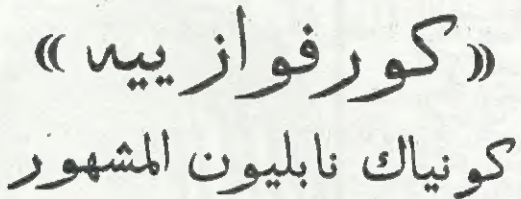 «كورفوازييه»
كونياك نابليون المشهور